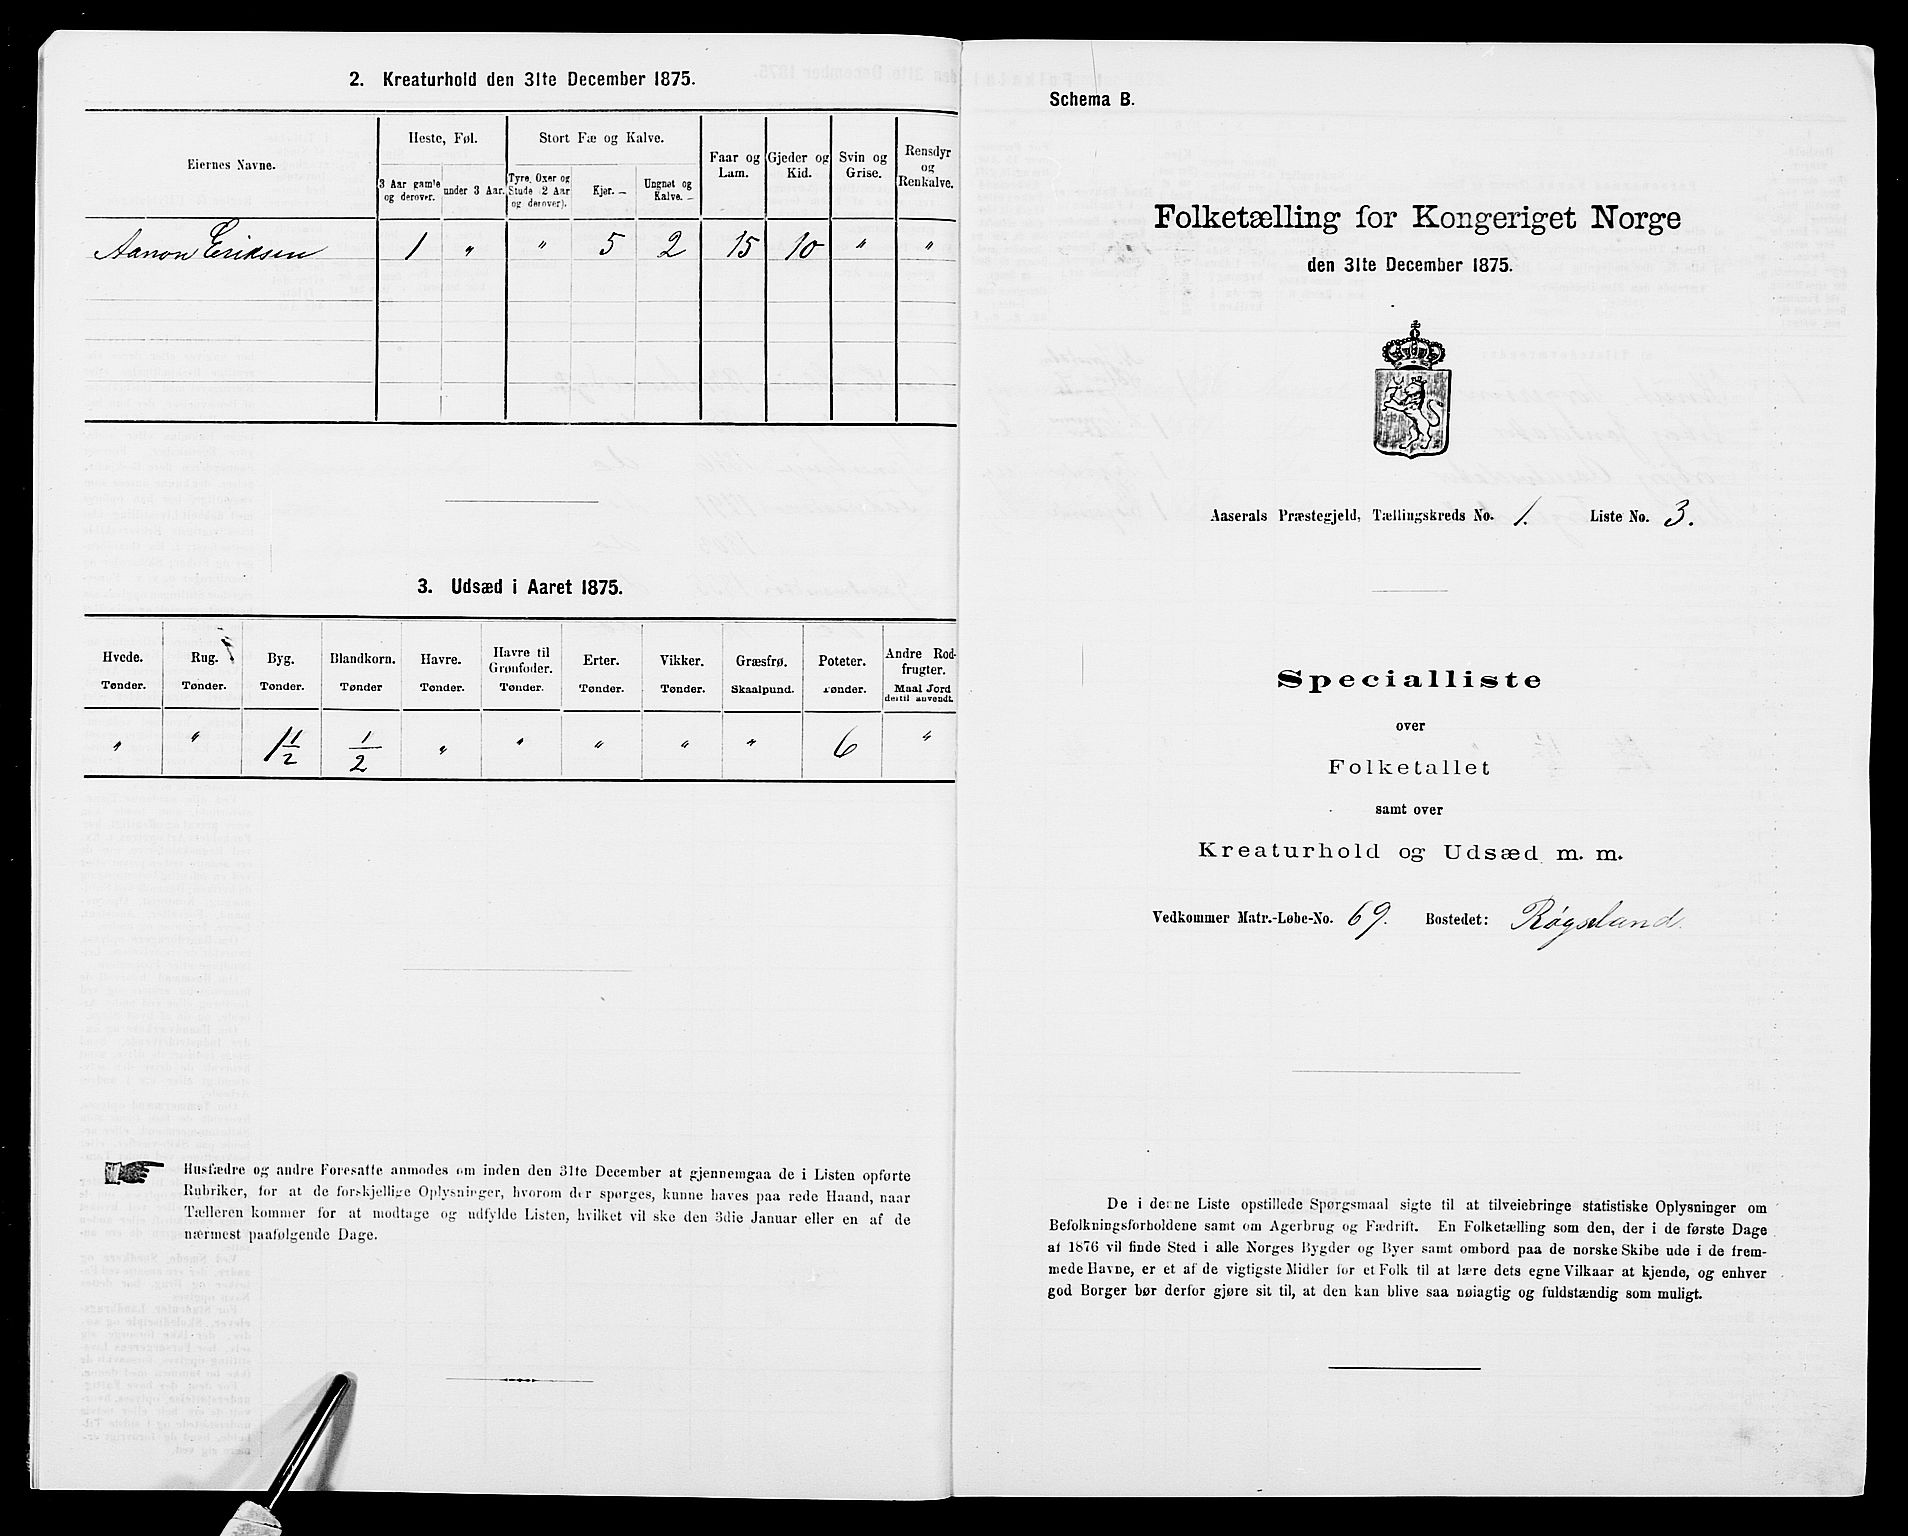 2. Kreaturhold den 31te December 1875.
Eiernes Navne.
Heste, Føl.
3 Aar gamle og derover.
under 3 Aar.
Stort Fæ og Kalve.
Tyre, Oxer og Stude (2 Aar og derover).
Kjør.
Ungnøt og Kalve.
Faar og Lam.
Gjeder og Kid.
Svin og Grise.
Rensdyr og Renkalve.
Aanon Eriksen 1 " " 5 2 15 10 " "
3. Udsæd i Aaret 1875.
Hvede. Tønder.
Rug. Tønder.
Byg. Tønder.
Blandkorn. Tønder
Havre. Tønder.
Havre til Grønfoder. Tønder.
Erter. Tønder.
Vikker. Tønder.
Græsfrø. Skaalpund.
Poteter. Tønder.
Andre Rodfrugter. Maal Jord dertil anvendt.
" " 1 1/2 1/2 " " " " " 6 "
Husfædre og andre Foresatte anmodes om inden den 31te December at gjennemgaa de i Listen opførte
Rubriker, for at de forskjellige Oplysninger, hvorom der spørges, kunne haves paa rede Haand, naar
Tælleren kommer for at modtage og udfylde Listen, hvilket vil ske den 3die Januar eller en af de
nærmest paafølgende Dage.
Schema B.
Folketælling for Kongeriget Norge
den 31te December 1875.
Aaserals Præstegjeld, Tællingskreds No. 1. Liste No. 3.
Specialliste
over
Folketallet
samt over
Kreaturhold og Udsæd m. m.
Vedkommer Matr.-Løbe-No. 69. Bostedet: Røgseland.
De i denne Liste opstillede Spørgsmaal sigte til at tilveiebringe statistiske Oplysninger om
Befolkningsforholdene samt om Agerbrug og Fædrift. En Folketælling som den, der i de første Dage
af 1876 vil finde Sted i alle Norges Bygder og Byer samt ombord paa de norske Skibe ude i de frem-
mede Havne, er et af de vigtigste Midler for et Folk til at lære dets egne Vilkaar at kjende, og enhver
god Borger bør derfor gjøre sit til, at den kan blive saa nøiagtig og fuldstændig som muligt.